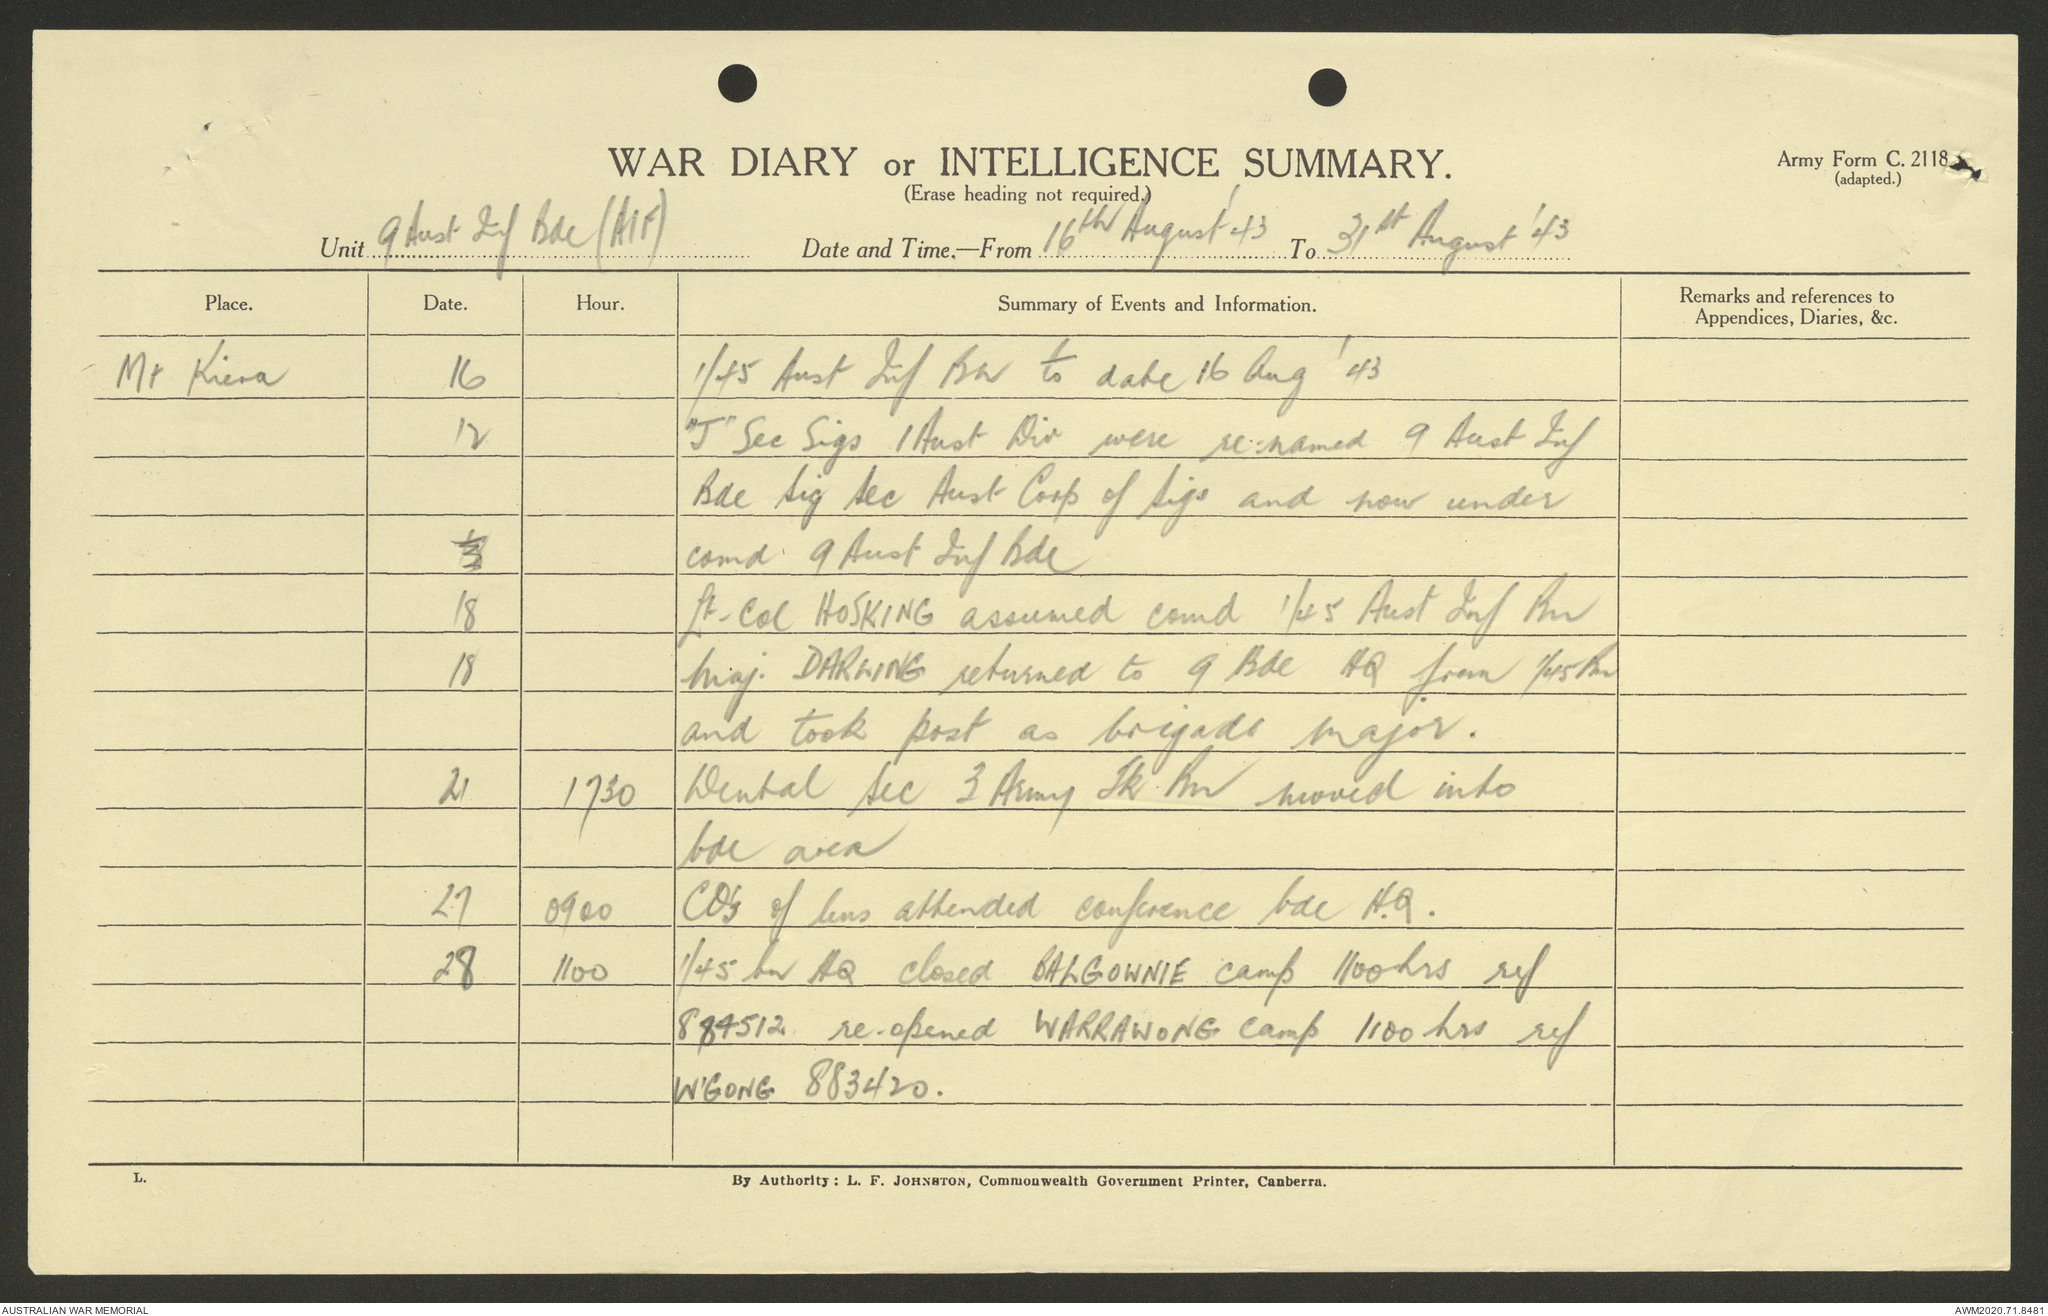 WAR DIARY or INTELLIGENCE SUMMARY.
(Erase heading not required.)
Army Form C. 2118
(adapted.)
Unit 9 Aust Inf Bde (AIF) Date and Time.—From 16th August '43 To 31st August '43
Place. Date. Hour. Summary of Events and Information. Remarks and references to
Appendices, Diaries, &c.
Mt Kiera 16 1/45 Aust Inf Bn to date 16 Aug '43
12 "J" Sec Sigs 1 Aust Div were re-named 9 Aust Inf
Bde Sig Sec Aust Corp of Sigs and now under
comd 9 Aust Inf Bde
18 Lt-Col HOSKING assumed comd 1/45 Aust Inf Bn
18 Maj. DARLING returned to 9 Bde HQ from 1/45 Bn
and took post as brigade major.
21 1730 Dental Sec 3 Army Tk Bn moved into
bde area
27 0900 CO's of bns attended conference bde H.Q.
28 1100 1/45 bn HQ closed BALGOWNIE camp 1100hrs ref
884512 re-opened WARRAWONG camp 1100 hrs ref
W'GONG 883420.
L.
By Authority: L. F. JOHNSTON, Commonwealth Government Printer, Canberra.
AUSTRALIAN WAR MEMORIAL
AWM2020.71.8481